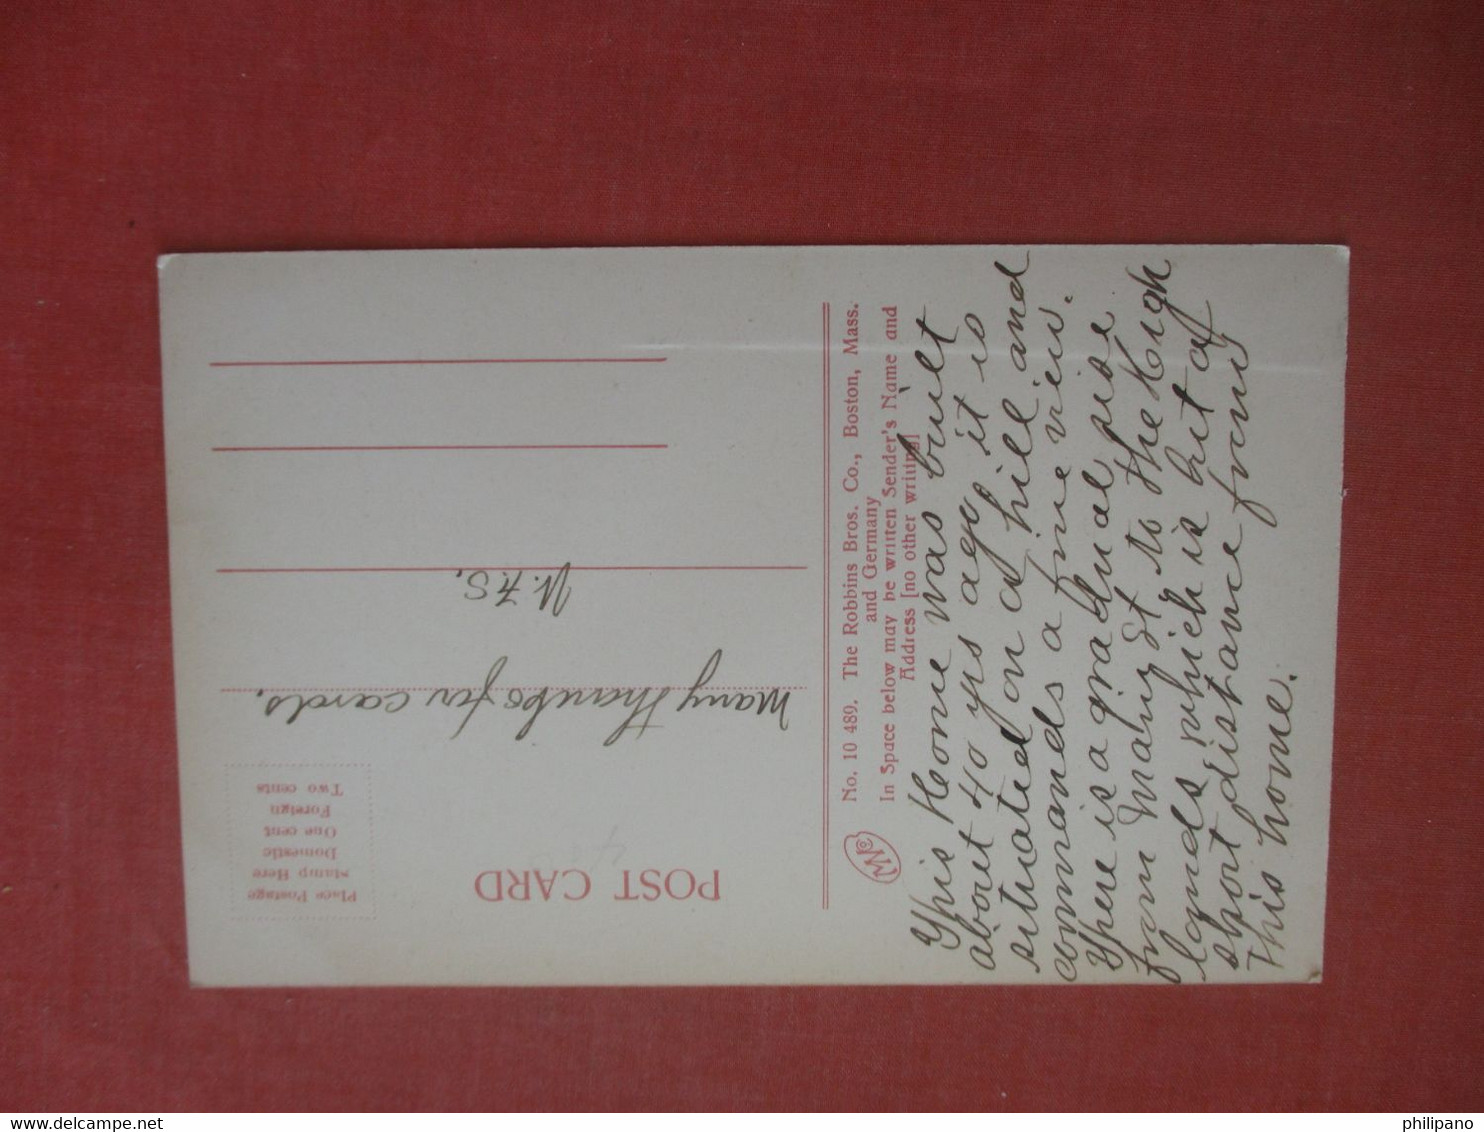 POST CARD
Place Postage
Stamp Here
Domestic
One cent
Foreign
Two cents
Many thanks for cards.
No. 10 489. The Robbins Bros. Co., Boston, Mass.
and Germany
In Space below may be written Sender's Name and
Address [no other writing]
This Home was built
about 40 yrs ago it is
situated on a hill and
commands a fine view.
There is a gradual rise
from Main St to the High
lands, which is but a
short distance from
this home.
philipano